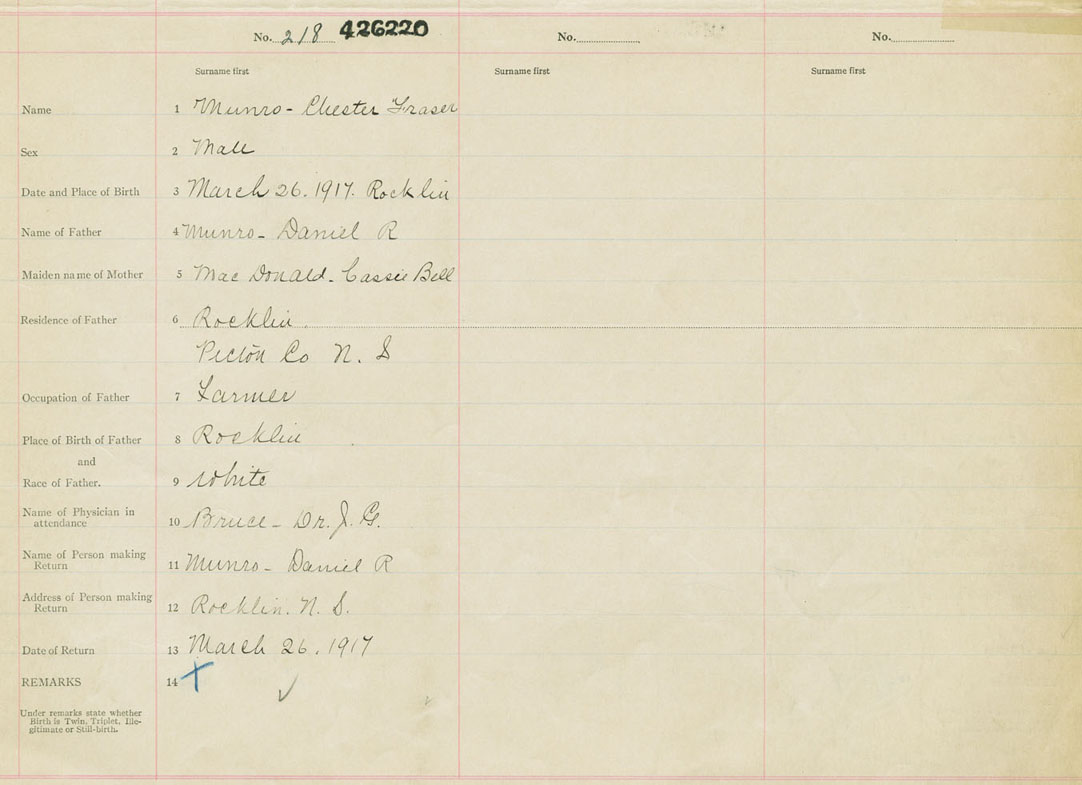 No. 218 426220 No. No.
Surname first Surname first Surname first
Name 1 Munro - Chester Fraser
Sex 2 Male
Date and Place of Birth 3 March 26. 1917. Rocklin
Name of Father 4 Munro - Daniel R
Maiden name of Mother 5 Mac Donald - Cassie Bell
Residence of Father 6 Rocklin
Pictou Co N. S
Occupation of Father 7 Farmer
Place of Birth of Father 8 Rocklin
and
Race of Father. 9 White
Name of Physician in
attendance 10 Bruce - Dr. J. G.
Name of Person making
Return 11 Munro - Daniel R
Address of Person making
Return 12 Rocklin. N. S.
Date of Return 13 March 26. 1917
REMARKS 14
Under remarks state whether
Birth is Twin, Triplet, Ille-
gitimate or Still-birth.